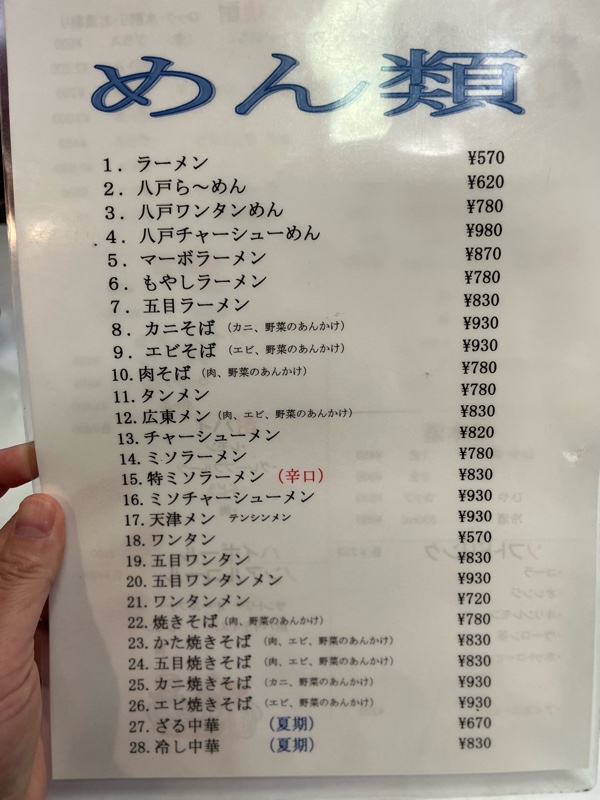 めん類
1. ラーメン ¥570
2. 八戸ら〜めん ¥620
3. 八戸ワンタンめん ¥780
4. 八戸チャーシューめん ¥980
5. マーボラーメン ¥870
6. もやしラーメン ¥780
7. 五目ラーメン ¥830
8. カニそば (カニ、野菜のあんかけ) ¥930
9. エビそば (エビ、野菜のあんかけ) ¥930
10. 肉そば (肉、野菜のあんかけ) ¥780
11. タンメン ¥780
12. 広東メン (肉、エビ、野菜のあんかけ) ¥830
13. チャーシューメン ¥820
14. ミソラーメン ¥780
15. 特ミソラーメン (辛口) ¥830
16. ミソチャーシューメン ¥930
17. 天津メン テンシンメン ¥930
18. ワンタン ¥570
19. 五目ワンタン ¥830
20. 五目ワンタンメン ¥930
21. ワンタンメン ¥720
22. 焼きそば (肉、野菜のあんかけ) ¥780
23. かた焼きそば (肉、エビ、野菜のあんかけ) ¥830
24. 五目焼きそば (肉、エビ、野菜のあんかけ) ¥830
25. カニ焼きそば (カニ、野菜のあんかけ) ¥930
26. エビ焼きそば (エビ、野菜のあんかけ) ¥930
27. ざる中華 (夏期) ¥670
28. 冷し中華 (夏期) ¥830